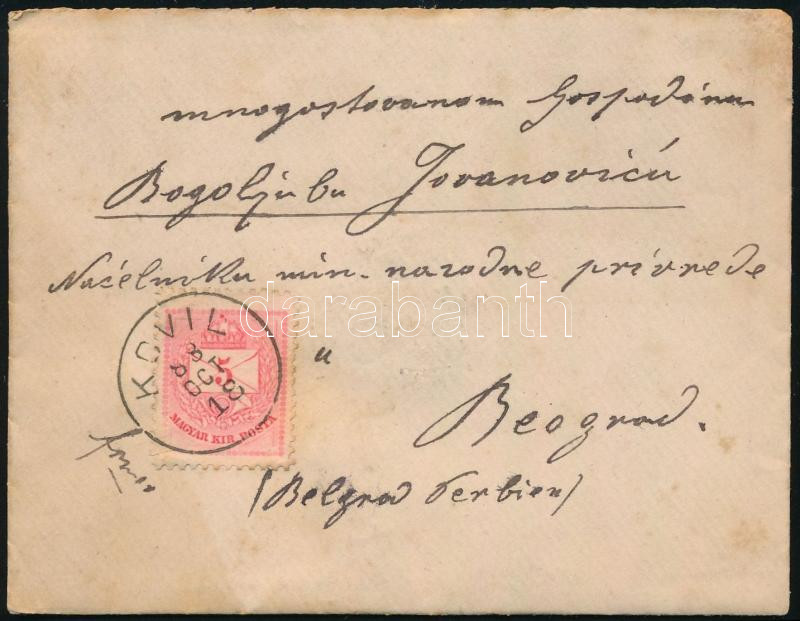 mnogostovanom Gospodinu
Bogoljubu Jovanoviću
Načelniku min. narodne privrede
u
Beograd.
(Belgrad Serbien)
KOVIL
5
MAGYAR KIR. POSTA
darabanth